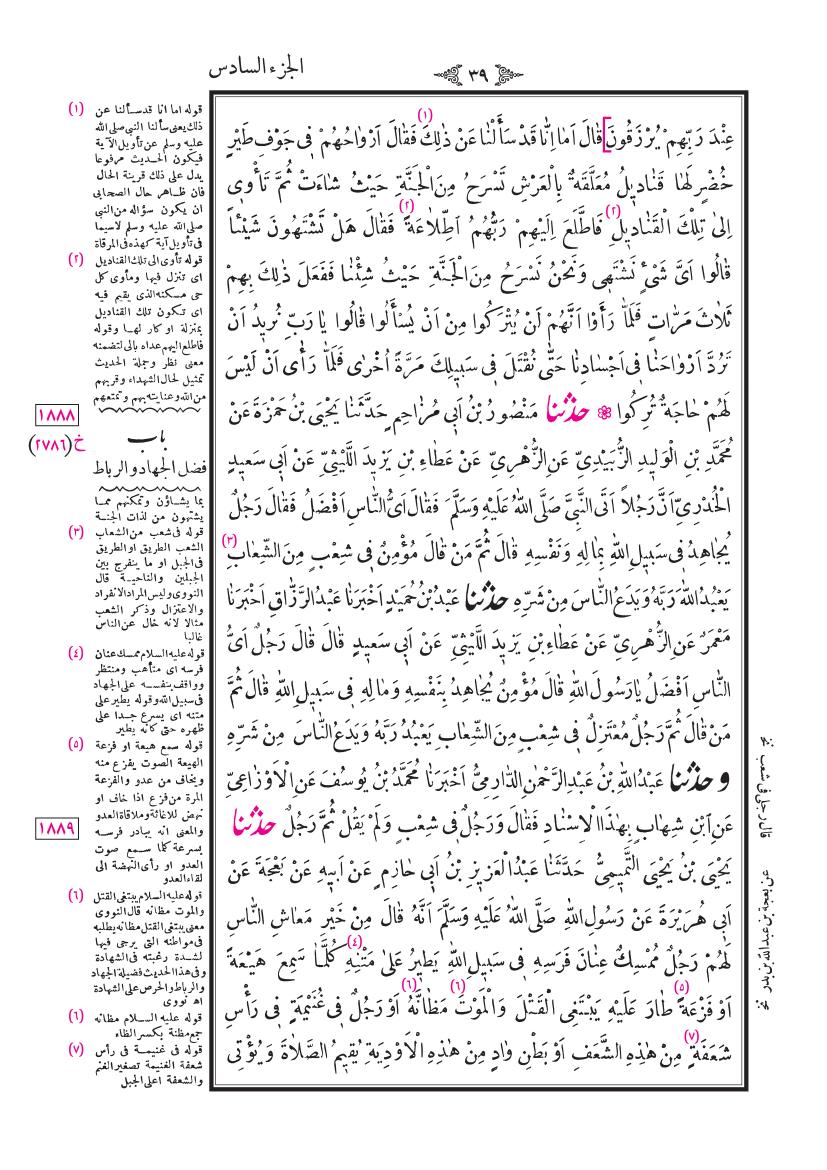 الجزء السادس
٣٩
عِنْدَ رَبِّهِمْ يُرْزَقُونَ] قَالَ اَمَا اِنَّا قَدْ سَأَلْنَا عَنْ ذٰلِكَ (١) فَقَالَ اَرْوَاحُهُمْ فِى جَوْفِ طَيْرٍ
خُضْرٍ لَهَا قَنَادِيلُ مُعَلَّقَةٌ بِالْعَرْشِ تَسْرَحُ مِنَ الْجَنَّةِ حَيْثُ شَاءَتْ ثُمَّ تَأْوِى
اِلىٰ تِلْكَ الْقَنَادِيلِ (٢) فَاطَّلَعَ اِلَيْهِمْ رَبُّهُمُ اطِّلَاعَةً (٢) فَقَالَ هَلْ تَشْتَهُونَ شَيْئاً
قَالُوا اَىَّ شَىْءٍ نَشْتَهِى وَنَحْنُ نَسْرَحُ مِنَ الْجَنَّةِ حَيْثُ شِئْنَا فَفَعَلَ ذٰلِكَ بِهِمْ
ثَلَاثَ مَرَّاتٍ فَلَمَّا رَأَوْا اَنَّهُمْ لَنْ يُتْرَكُوا مِنْ اَنْ يُسْأَلُوا قَالُوا يَا رَبِّ نُرِيدُ اَنْ
تَرُدَّ اَرْوَاحَنَا فِى اَجْسَادِنَا حَتّٰى نُقْتَلَ فِى سَبِيلِكَ مَرَّةً اُخْرٰى فَلَمَّا رَأٰى اَنْ لَيْسَ
لَهُمْ حَاجَةٌ تُرِكُوا ۞ حَدَّثَنَا مَنْصُورُ بْنُ اَبِى مُزَاحِمٍ حَدَّثَنَا يَحْيَى بْنُ حَمْزَةَ عَنْ
مُحَمَّدِ بْنِ الْوَلِيدِ الزُّبَيْدِىِّ عَنِ الزُّهْرِىِّ عَنْ عَطَاءِ بْنِ يَزِيدَ اللَّيْثِىِّ عَنْ اَبِى سَعِيدٍ
الْخُدْرِىِّ اَنَّ رَجُلاً اَتَى النَّبِىَّ صَلَّى اللهُ عَلَيْهِ وَسَلَّمَ فَقَالَ اَىُّ النَّاسِ اَفْضَلُ فَقَالَ رَجُلٌ
يُجَاهِدُ فِى سَبِيلِ اللهِ بِمَالِهِ وَنَفْسِهِ قَالَ ثُمَّ مَنْ قَالَ مُؤْمِنٌ فِى شِعْبٍ مِنَ الشِّعَابِ (٣)
يَعْبُدُ اللهَ رَبَّهُ وَيَدَعُ النَّاسَ مِنْ شَرِّهِ حَدَّثَنَا عَبْدُ بْنُ حُمَيْدٍ اَخْبَرَنَا عَبْدُ الرَّزَّاقِ اَخْبَرَنَا
مَعْمَرٌ عَنِ الزُّهْرِىِّ عَنْ عَطَاءِ بْنِ يَزِيدَ اللَّيْثِىِّ عَنْ اَبِى سَعِيدٍ قَالَ قَالَ رَجُلٌ اَىُّ
النَّاسِ اَفْضَلُ يَا رَسُولَ اللهِ قَالَ مُؤْمِنٌ يُجَاهِدُ بِنَفْسِهِ وَمَالِهِ فِى سَبِيلِ اللهِ قَالَ ثُمَّ
مَنْ قَالَ ثُمَّ رَجُلٌ مُعْتَزِلٌ فِى شِعْبٍ مِنَ الشِّعَابِ يَعْبُدُ رَبَّهُ وَيَدَعُ النَّاسَ مِنْ شَرِّهِ
وحَدَّثَنَا عَبْدُ اللهِ بْنُ عَبْدِ الرَّحْمٰنِ الدَّارِمِىُّ اَخْبَرَنَا مُحَمَّدُ بْنُ يُوسُفَ عَنِ الْاَوْزَاعِىِّ
عَنِ ابْنِ شِهَابٍ بِهٰذَا الْاِسْنَادِ فَقَالَ وَرَجُلٌ فِى شِعْبٍ وَلَمْ يَقُلْ ثُمَّ رَجُلٌ حَدَّثَنَا
يَحْيَى بْنُ يَحْيَى التَّمِيمِىُّ حَدَّثَنَا عَبْدُ الْعَزِيزِ بْنُ اَبِى حَازِمٍ عَنْ اَبِيهِ عَنْ بَعْجَةَ عَنْ
اَبِى هُرَيْرَةَ عَنْ رَسُولِ اللهِ صَلَّى اللهُ عَلَيْهِ وَسَلَّمَ اَنَّهُ قَالَ مِنْ خَيْرِ مَعَاشِ النَّاسِ
لَهُمْ رَجُلٌ مُمْسِكٌ عِنَانَ فَرَسِهِ فِى سَبِيلِ اللهِ يَطِيرُ عَلىٰ مَتْنِهِ (٤) كُلَّمَا سَمِعَ هَيْعَةً
اَوْ فَزْعَةً (٥) طَارَ عَلَيْهِ يَبْتَغِى الْقَتْلَ وَالْمَوْتَ (٦) مَظَانَّهُ (٦) اَوْ رَجُلٌ فِى غُنَيْمَةٍ فِى رَأْسِ
شَعَفَةٍ (٧) مِنْ هٰذِهِ الشَّعَفِ اَوْ بَطْنِ وَادٍ مِنْ هٰذِهِ الْاَوْدِيَةِ يُقِيمُ الصَّلَاةَ وَيُؤْتِى
(١) قوله اما انا قد سألنا عن
ذلك يعنى سألنا النبى صلى الله
عليه وسلم عن تأويل الآية
فيكون الحديث مرفوعا
يدل على ذلك قرينة الحال
فان ظاهر حال الصحابى
ان يكون سؤاله من النبى
صلى الله عليه وسلم لاسيما
فى تأويل آية كهذه فى المرقاة
(٢) قوله تأوى الى تلك القناديل
اى تنزل فيها ومأوى كل
حى مسكنه الذى يقيم فيه
اى تكون تلك القناديل
بمنزلة او كار لها وقوله
فاطلع اليهم عداه بالى لتضمنه
معنى نظر وجملة الحديث
تمثيل لحال الشهداء وقربهم
من الله وعنايته بهم وتمتعهم
١٨٨٨
خ (٢٧٨٦)
باب
فضل الجهاد والرباط
بما يشاؤن وتمكنهم مما
يشتهون من لذات الجنة
(٣) قوله فى شعب من الشعاب
الشعب الطريق او الطريق
فى الجبل او ما ينفرج بين
الجبلين والناحية قال
النووى وليس المراد الانفراد
والاعتزال وذكر الشعب
مثالا لانه خال عن الناس
غالبا
(٤) قوله عليه السلام ممسك عنان
فرسه اى متأهب ومنتظر
وواقف بنفسه على الجهاد
فى سبيل الله وقوله يطير على
متنه اى يسرع جدا على
ظهره حتى كأنه يطير
(٥) قوله سمع هيعة او فزعة
الهيعة الصوت يفزع منه
ويخاف من عدو والفزعة
المرة من فزع اذا خاف او
نهض للاغاثة وملاقاة العدو
والمعنى انه يبادر فرسه
بسرعة كلما سمع صوت
العدو او رأى النهضة الى
لقاء العدو
١٨٨٩
(٦) قوله عليه السلام يبتغى القتل
والموت مظانه قال النووى
معنى يبتغى القتل مظانه يطلبه
فى مواطنه التى يرجى فيها
لشدة رغبته فى الشهادة
وفى هذا الحديث فضيلة الجهاد
والرباط والحرص على الشهادة
اه نووى
(٦) قوله عليه السلام مظانه
جمع مظنة بكسر الظاء
(٧) قوله فى غنيمة فى رأس
شعفة الغنيمة تصغير الغنم
والشعفة اعلى الجبل
قال رجل فى شعب نخ
عن بعجة بن عبدالله بن بدر نخ